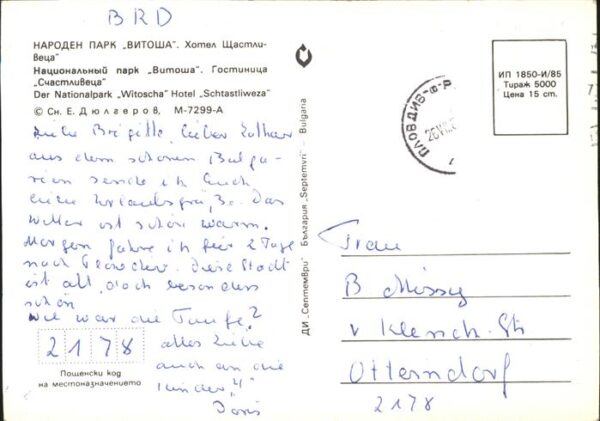 BRD
НАРОДЕН ПАРК „ВИТОША". Хотел Щастли-
веца"
Национальный парк „Витоша". Гостиница
„Счастливеца"
Der Nationalpark „Witoscha" Hotel „Schtastliweza"
© Сн. Е. Дюлгеров, М-7299-А
Liebe Brigitte, lieber Lothar
aus dem schönen Bulga-
rien sende ich Euch
liebe Urlaubsgrüße. Das
Wetter ist schön warm.
Morgen fahre ich für 2 Tage
nach Plovdiv. Diese Stadt
ist alt, doch besonders
schön
Wie war die Taufe?
alles Liebe
auch an die
Kinder
Doris
2178
Пощенски код
на местоназначението
ДИ „Септември" България „Septemvri" - Bulgaria
ПЛОВДИВ
ИП 1850-И/85
Тираж 5000
Цена 15 ст.
Frau
B
v
Otterndorf
2178